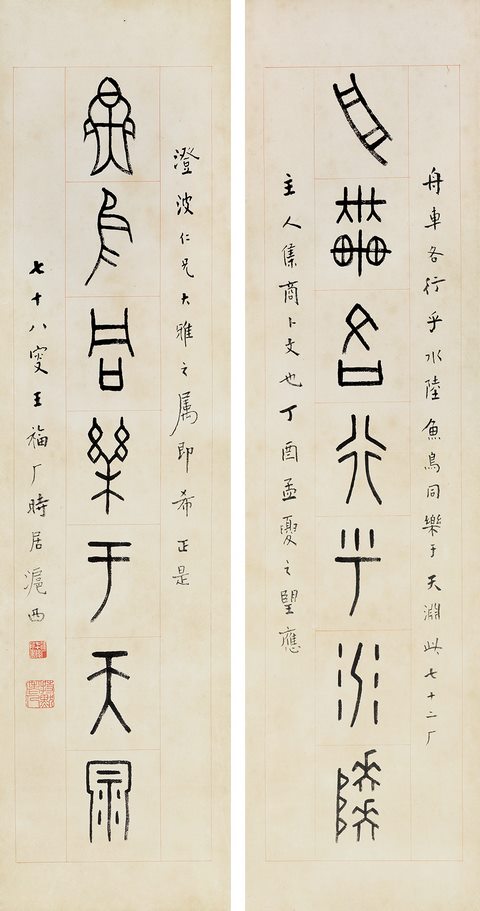 舟車各行乎水陸魚鳥同樂于天淵此七十二厂
舟車各行乎水陸
主人集商卜文也丁酉孟夏之朢應
澄波仁兄大雅之属即希正是
魚鳥同樂于天淵
七十八叜王福厂時居滬西